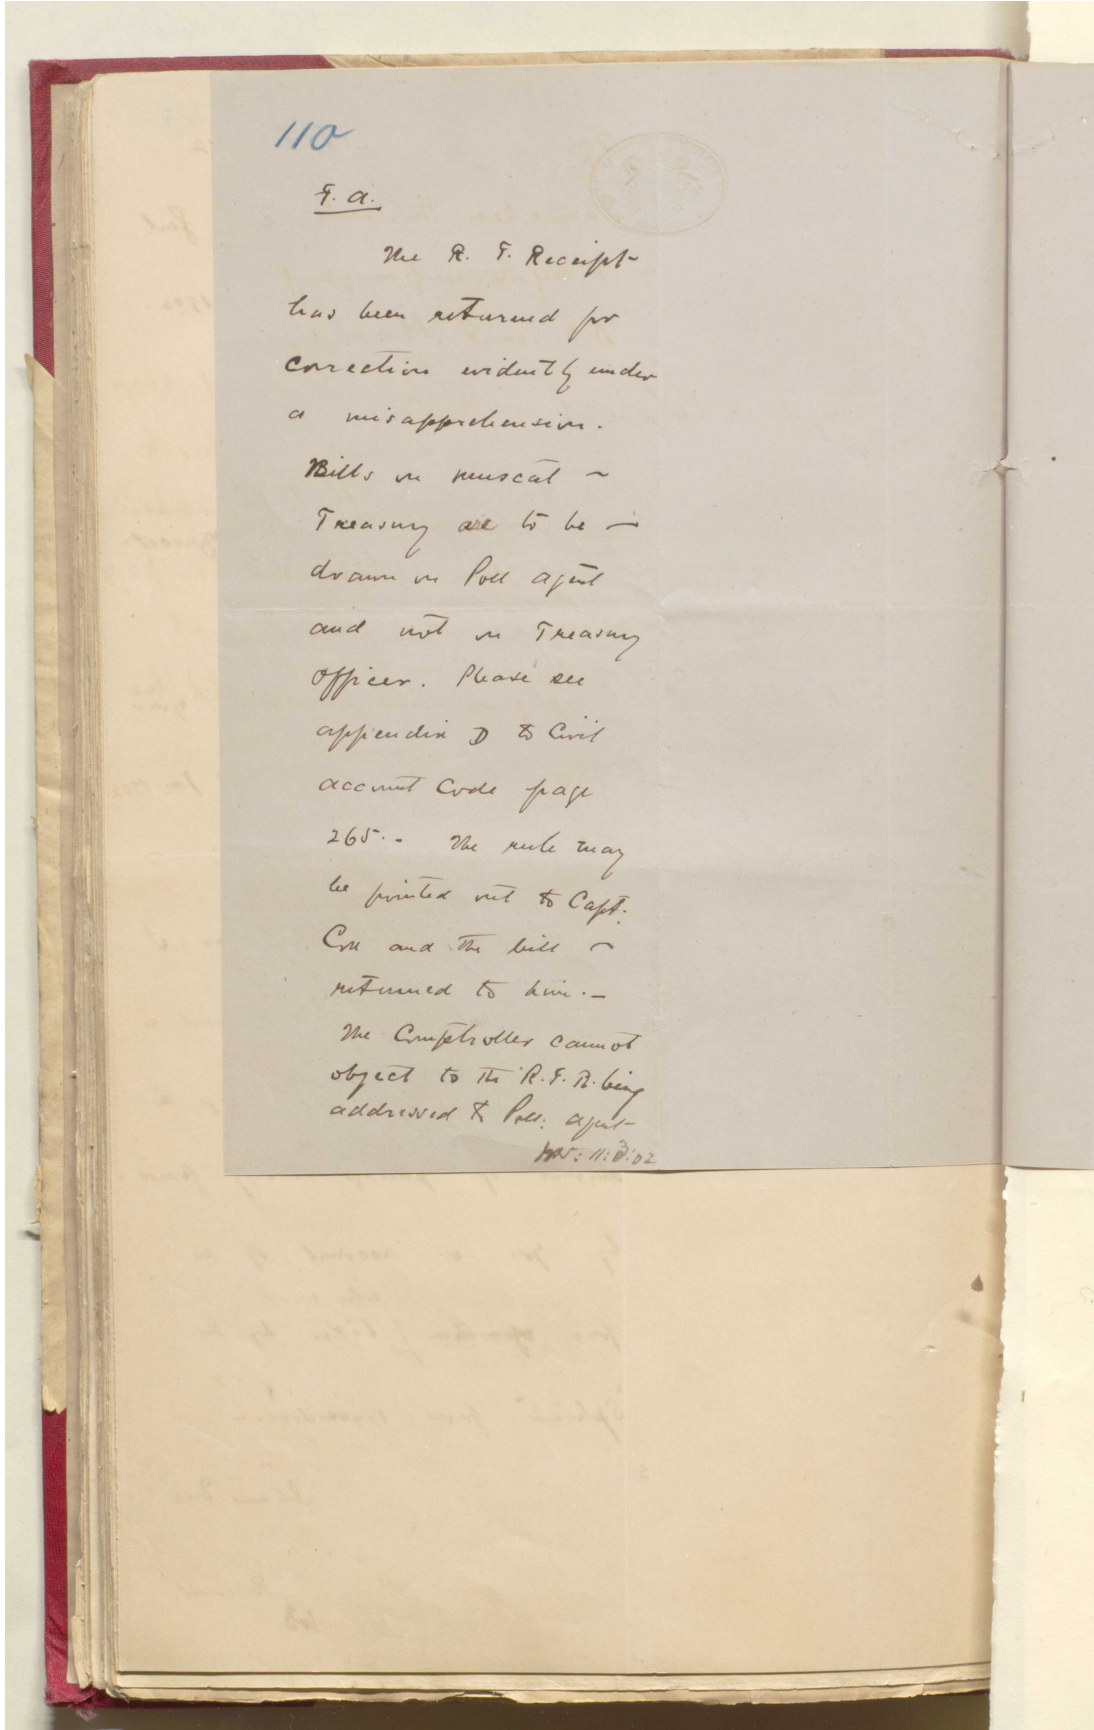 110
F. A.
The R. T. Receipt
has been returned for
correction evidently under
a misapprehension.
Bills on Muscat
Treasury are to be
drawn on Poll agent
and not on Treasury
officer. Please see
appendix D to Civil
account Code page
265. - The rule may
be pointed out to Capt.
Cox and the bill
returned to him. -
The Comptroller cannot
object to the R. T. R. being
addressed to Poll: agent
11:3:02